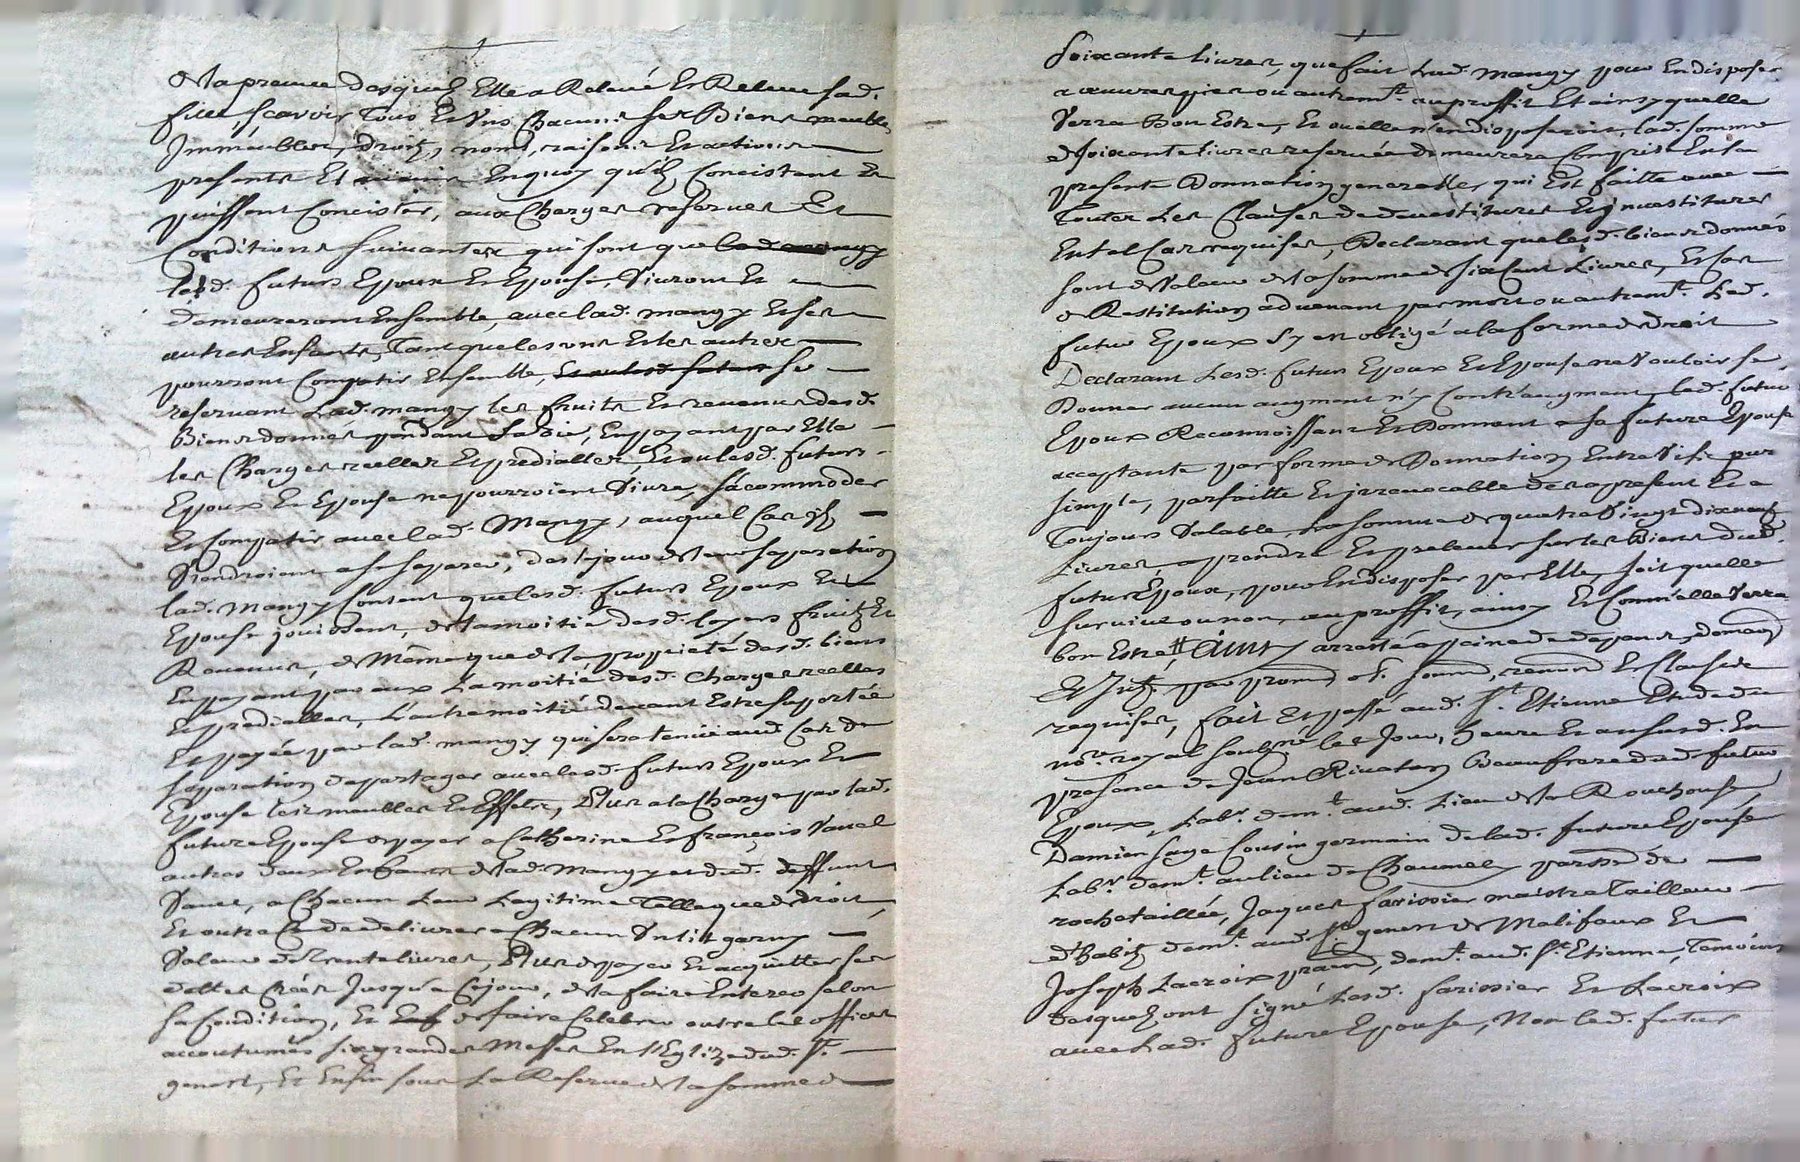 de la preuve desquels Elle a Relevé Et Releve sad.
fille, scavoir Tous Et Uns Chacuns ses Biens meubles
Immeubles, droitz, noms, raisons Et actions
presents Et Enquoy qu'ilz Concistent Et
puissent Concister, aux Charges reserves Et
Conditions suivantes qui sont que
lesd. futurs Epoux Et Epouse, Vivront Et
demeureront Ensemble, avec lad. mangy Et ses
autres Enfants, Tant que les uns Et les autres
pourront Compatir Ensemble, se
reservant Lad. mangy les fruits Et revenus desd.
Biens donnés pendant sa Vie, En payant par Elle
les Charges reelles Et predialles, Et ou lesd. futurs
Epoux Et Epouse ne pourroient Vivre, s'acommoder
Et Compatir avec lad. Mangy, auquel Cas ilz
Viendroient a se separer, des le jour de leur separation
lad. Mangy Consent que lesd. futurs Epoux Et
Epouse jouissent, de la moitié desd. loyers fruitz Et
Revenus, de Même que de la propriété desd. biens
En payant par eux La moitié desd. Charges reelles
Et predialles, L'autre moitié devant Estre suportée
Et payée par lad. mangy qui sera tenüe aud. Cas de
separation de partager avec lesd. futurs Epoux Et
Epouse les meubles Et Effets, Plus a la Charge par lad.
future Epouse de payer a Catherine Et françois Vauel
autres deux Enfants de lad. Mangy et dud. deffunt
Vauel, a Chacun Leur Legitime Telle que de droit,
Et outre Ce de delivrer a Chacun Un lit garny
Valeur de Trente livres, Plus de payer Et acquitter ses
dettes Créés Jusqu'a Cejour, de la faire Enterer selon
sa Condition, Et de faire Celebrer outre les offices
accoutumés six grandes Messes En l'Eglize dud. St.
genest, Et Enfin sous La Reserve de la somme de
Soixante livres, que fait Lad. Mangy pour En disposer
a œuvres pies ou autremt. au proffit Et ainsy quelle
Verra Bon Estre, Et ou elle n'en disposeroit, lad. somme
de soixante livres reservée demeurera Comprise En sa
presente Donnation generalle, qui Est faitte avec
Toutes Les Clauses de devestitures Et jnvestitures
En tel Cas requises, Declarant que lesd. biens donnés
sont de Valeur de la somme de six Cent Livres, Et Cas
de Restitution advenant par mort ou autremt. Led.
futur Epoux s'y est obligé a la forme de droit
Declarant Lesd. futurs Epoux Et Epouse ne Vouloir se
Donner aucun augment n'y Contr'augment, led. futur
Epoux Reconnoissant Et Donnant a sa future Epouse
acceptante par forme de Donnation Entre Vifs pur
simple, parfaitte Et jrrevocable des a present Et a
Toujours Valable, La somme de quatre Vingt dix neuf
Livres, a prendre Et prelever sur les Biens dud.
futur Epoux, pour En disposer par Elle, soit quelle
survive ou non, au proffit, ainsy Et Comm'elle Verra
bon Estre, Ainsy arresté a peine de depens, domag.
Et Jntz. par prom. ob. soum. renon. Et Clauses
requises, fait Et passé aud. St. Etienne Etude de
nore. royal soubzné les Jour, heure Et an susd. En
presence de Jean Rivaton Beaufrere dud. futur
Epoux, Labr. demt. aud. Lieu de la Rouchouse,
Damien sage Cousin germain de lad. future Epouse
Labr. demt. au lieu de Chavanel parroisse de
rochetaillée, Jaques farissier maistre Tailleur
d'habitz demt. aud. St. genest de Malifaux Et
Joseph Lacroix demt. aud. St. Etienne, Temoins
desquelz ont signé Lesd. farissier Et Lacroix
avec Lad. future Epouse, Non led. futur